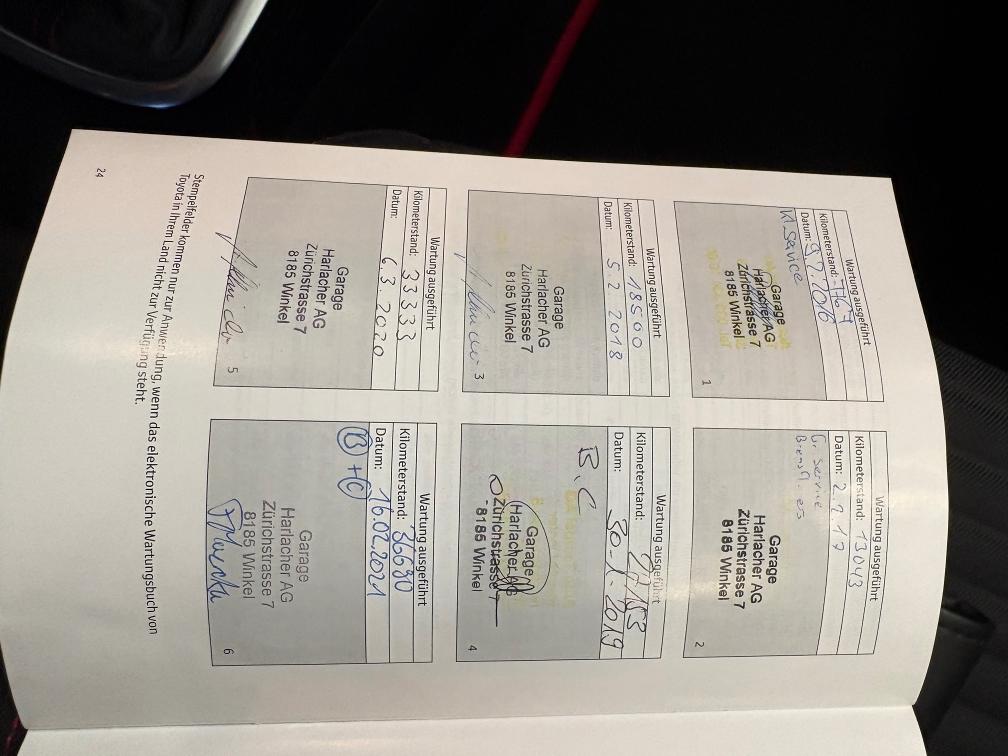 Wartung ausgeführt
Kilometerstand:
Datum: 9.2.2016
Kl. Service
Garage
Harlacher AG
Zürichstrasse 7
8185 Winkel
1
Wartung ausgeführt
Kilometerstand: 13043
Datum: 2.2.17
Gr. Service
Garage
Harlacher AG
Zürichstrasse 7
8185 Winkel
2
Wartung ausgeführt
Kilometerstand: 18500
Datum: 5.2.2018
Garage
Harlacher AG
Zürichstrasse 7
8185 Winkel
3
Wartung ausgeführt
Kilometerstand:
Datum: 30-1-2019
B.C
Garage
Harlacher AG
Zürichstrasse 7
8185 Winkel
4
Wartung ausgeführt
Kilometerstand: 33333
Datum: 6.3.2020
Garage
Harlacher AG
Zürichstrasse 7
8185 Winkel
5
Wartung ausgeführt
Kilometerstand: 36680
Datum: 16.02.2021
B + C
Garage
Harlacher AG
Zürichstrasse 7
8185 Winkel
6
Stempelfelder kommen nur zur Anwendung, wenn das elektronische Wartungsbuch von
Toyota in Ihrem Land nicht zur Verfügung steht.
24